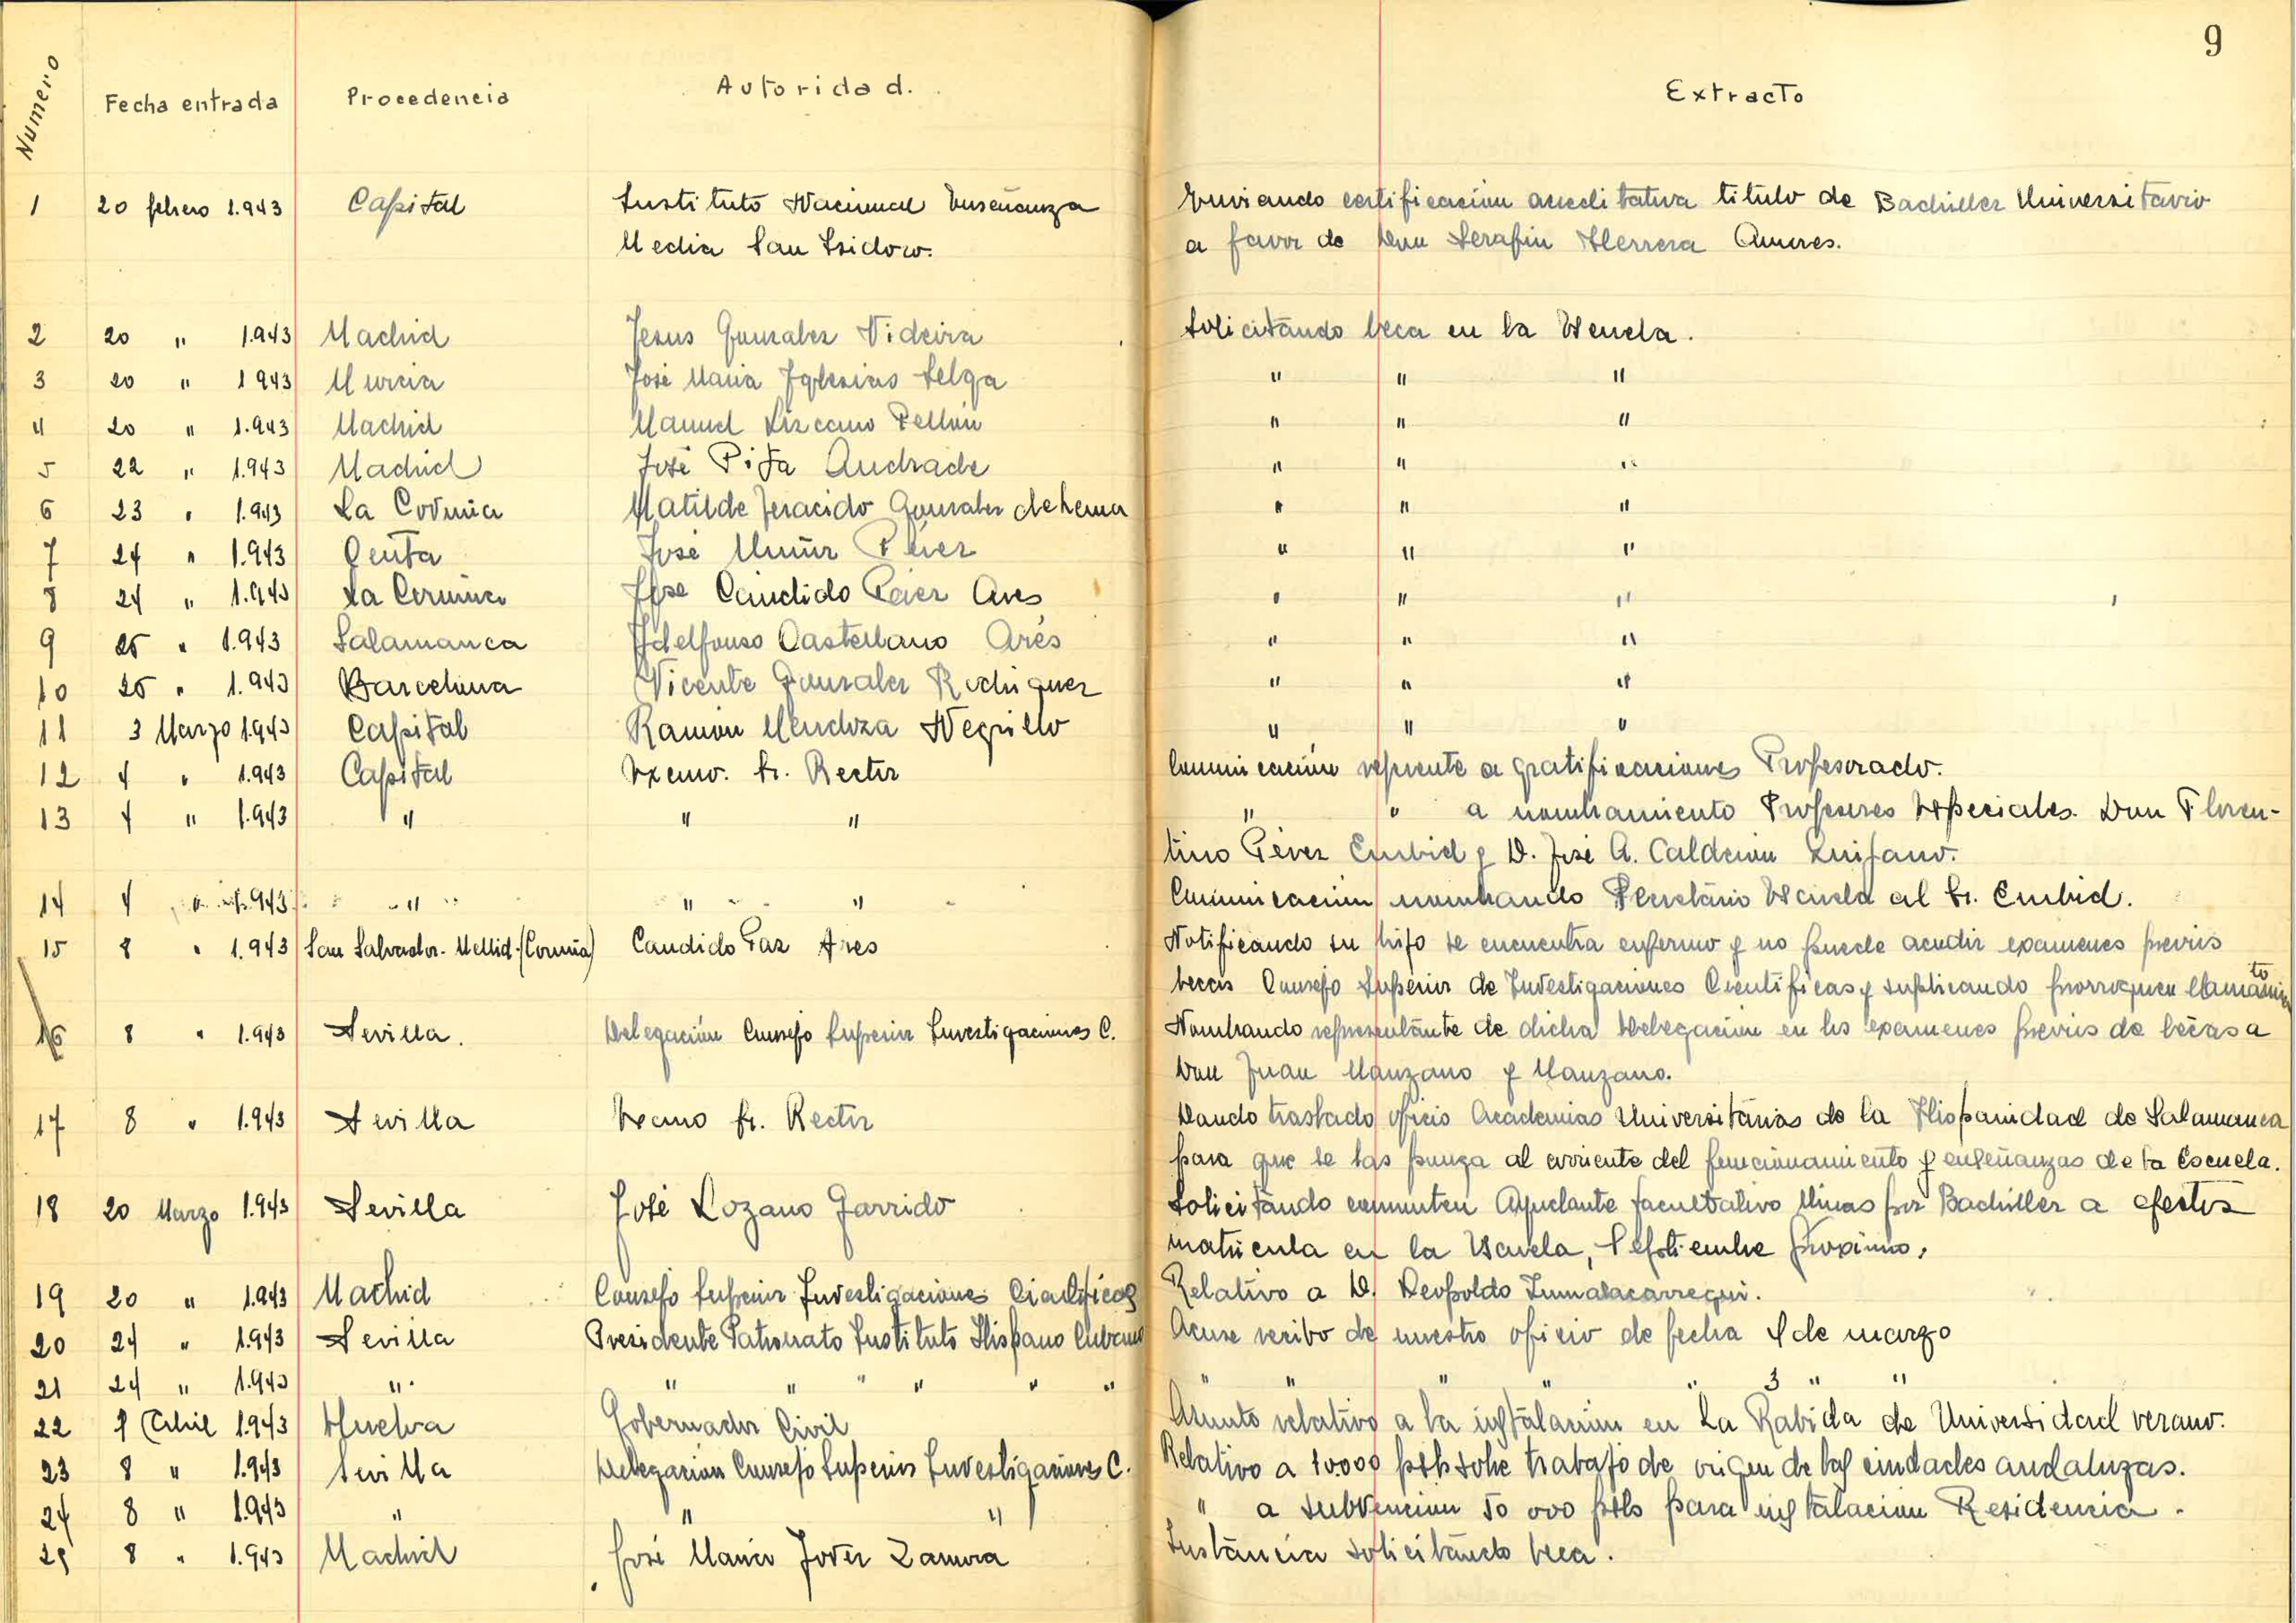 9
Numero Fecha entrada Procedencia Autoridad. Extracto
1 20 febrero 1.943 Capital Instituto Nacional Enseñanza Enviando certificación acreditativa titulo de Bachiller Universitario
Media San Isidoro. a favor de Don Serafin Herrera
2 20 " 1.943 Madrid Jesus Gonzalez Videira Solicitando beca en la Escuela.
3 20 " 1943 Murcia José Maria Iglesias Selga " " "
4 20 " 1.943 Madrid Manuel Lizcano Pellón " " "
5 22 " 1.943 Madrid José Pita Andrade " " "
6 23 " 1.943 La Coruña Matilde Gonzalez " " "
7 24 " 1.943 Ceuta José Muñoz Perez " " "
8 24 " 1.943 La Coruña Jose Candido Ares " " "
9 25 " 1.943 Salamanca Ildelfonso Castellano Arés " " "
10 25 " 1.943 Barcelona Vicente Gonzalez Rodriguez " " "
11 3 Marzo 1.943 Capital Ramón Mendoza Negrillo " " "
12 4 " 1.943 Capital Excmo. Sr. Rector Comunicación referente a gratificaciones Profesorado.
13 4 " 1.943 " " " " " a nombramiento Profesores Especiales. Don Floren-
tino Pérez Embid y D. José A. Calderón Quijano.
14 4 " 1.943 " " " Comunicación nombrando Secretario Escuela al Sr. Embid.
15 8 " 1.943 San Salvador-Mellid-(Coruña) Candido Paz Ares Notificando su hijo se encuentra enfermo y no puede acudir examenes previos
becas Consejo Superior de Investigaciones Cientificas y suplicando prorroguen llamamiento
16 8 " 1.943 Sevilla. Delegación Consejo Superior Investigaciones C. Nombrando representante de dicha Delegación en los examenes previos de becas a
Don Juan Manzano y Manzano.
17 8 " 1.943 Sevilla Excmo Sr. Rector Dando traslado oficio Academias Universitarias de la Hispanidad de Salamanca
para que se las ponga al corriente del funcionamiento y enseñanzas de la Escuela.
18 20 Marzo 1.943 Sevilla José Lozano Garrido Solicitando conmuten Ayudante facultativo Minas por Bachiller a efectos
matricula en la Escuela, Septiembre próximo.
19 20 " 1.943 Madrid Consejo Superior Investigaciones Cientificas Relativo a D. Leopoldo Zumalacarregui.
20 24 " 1.943 Sevilla Presidente Patronato Instituto Hispano Cubano Acuse recibo de nuestro oficio de fecha 4 de marzo
21 24 " 1.943 " " " " " " " " " " " 3 " "
22 1 Abril 1.943 Huelva Gobernador Civil Asunto relativo a la instalación en La Rabida de Universidad verano.
23 8 " 1.943 Sevilla Delegación Consejo Superior Investigaciones C. Relativo a 10.000 pts sobre trabajo de origen de las ciudades andaluzas.
24 8 " 1.943 " " " " a subvención 50 000 pts para instalación Residencia.
25 8 " 1.943 Madrid José Maria Jover Zamora Instancia solicitando beca.